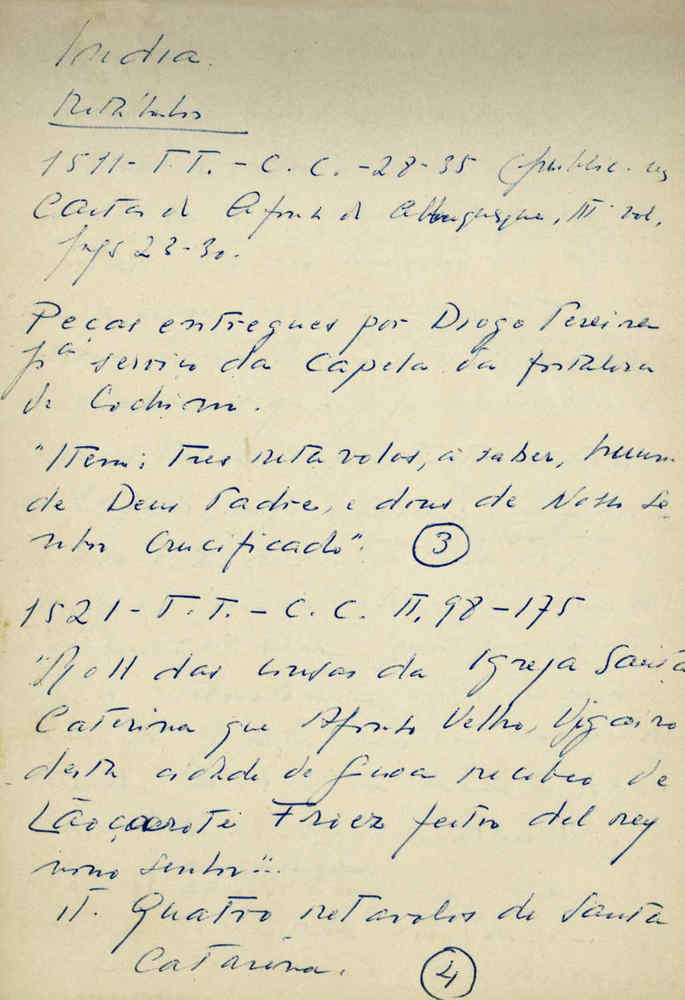 India.
Retábulos
1511 - T.T. - C. C. - 28-35 (public. nas
Cartas de Afonso de Albuquerque, III vol,
pags 23-30.
Peças entregues por Diogo Pereira
pª serviço da Capela da fortaleza
de Cochim.
"Item: tres retavolos, a saber, huum
de Deus Padre, e dous de Nosso Se-
nhor Crucificado". 3
1521 - T. T. - C. C. II, 98-175
"Roll das cousas da Igreja Santa
Caterina que Afonso Velho, Vigairo
desta cidade de Guoa recebeo de
Lãoçarote Froez feitor del rey
noso senhor"..
It. Quatro retavolos de Santa
Catarina. 4